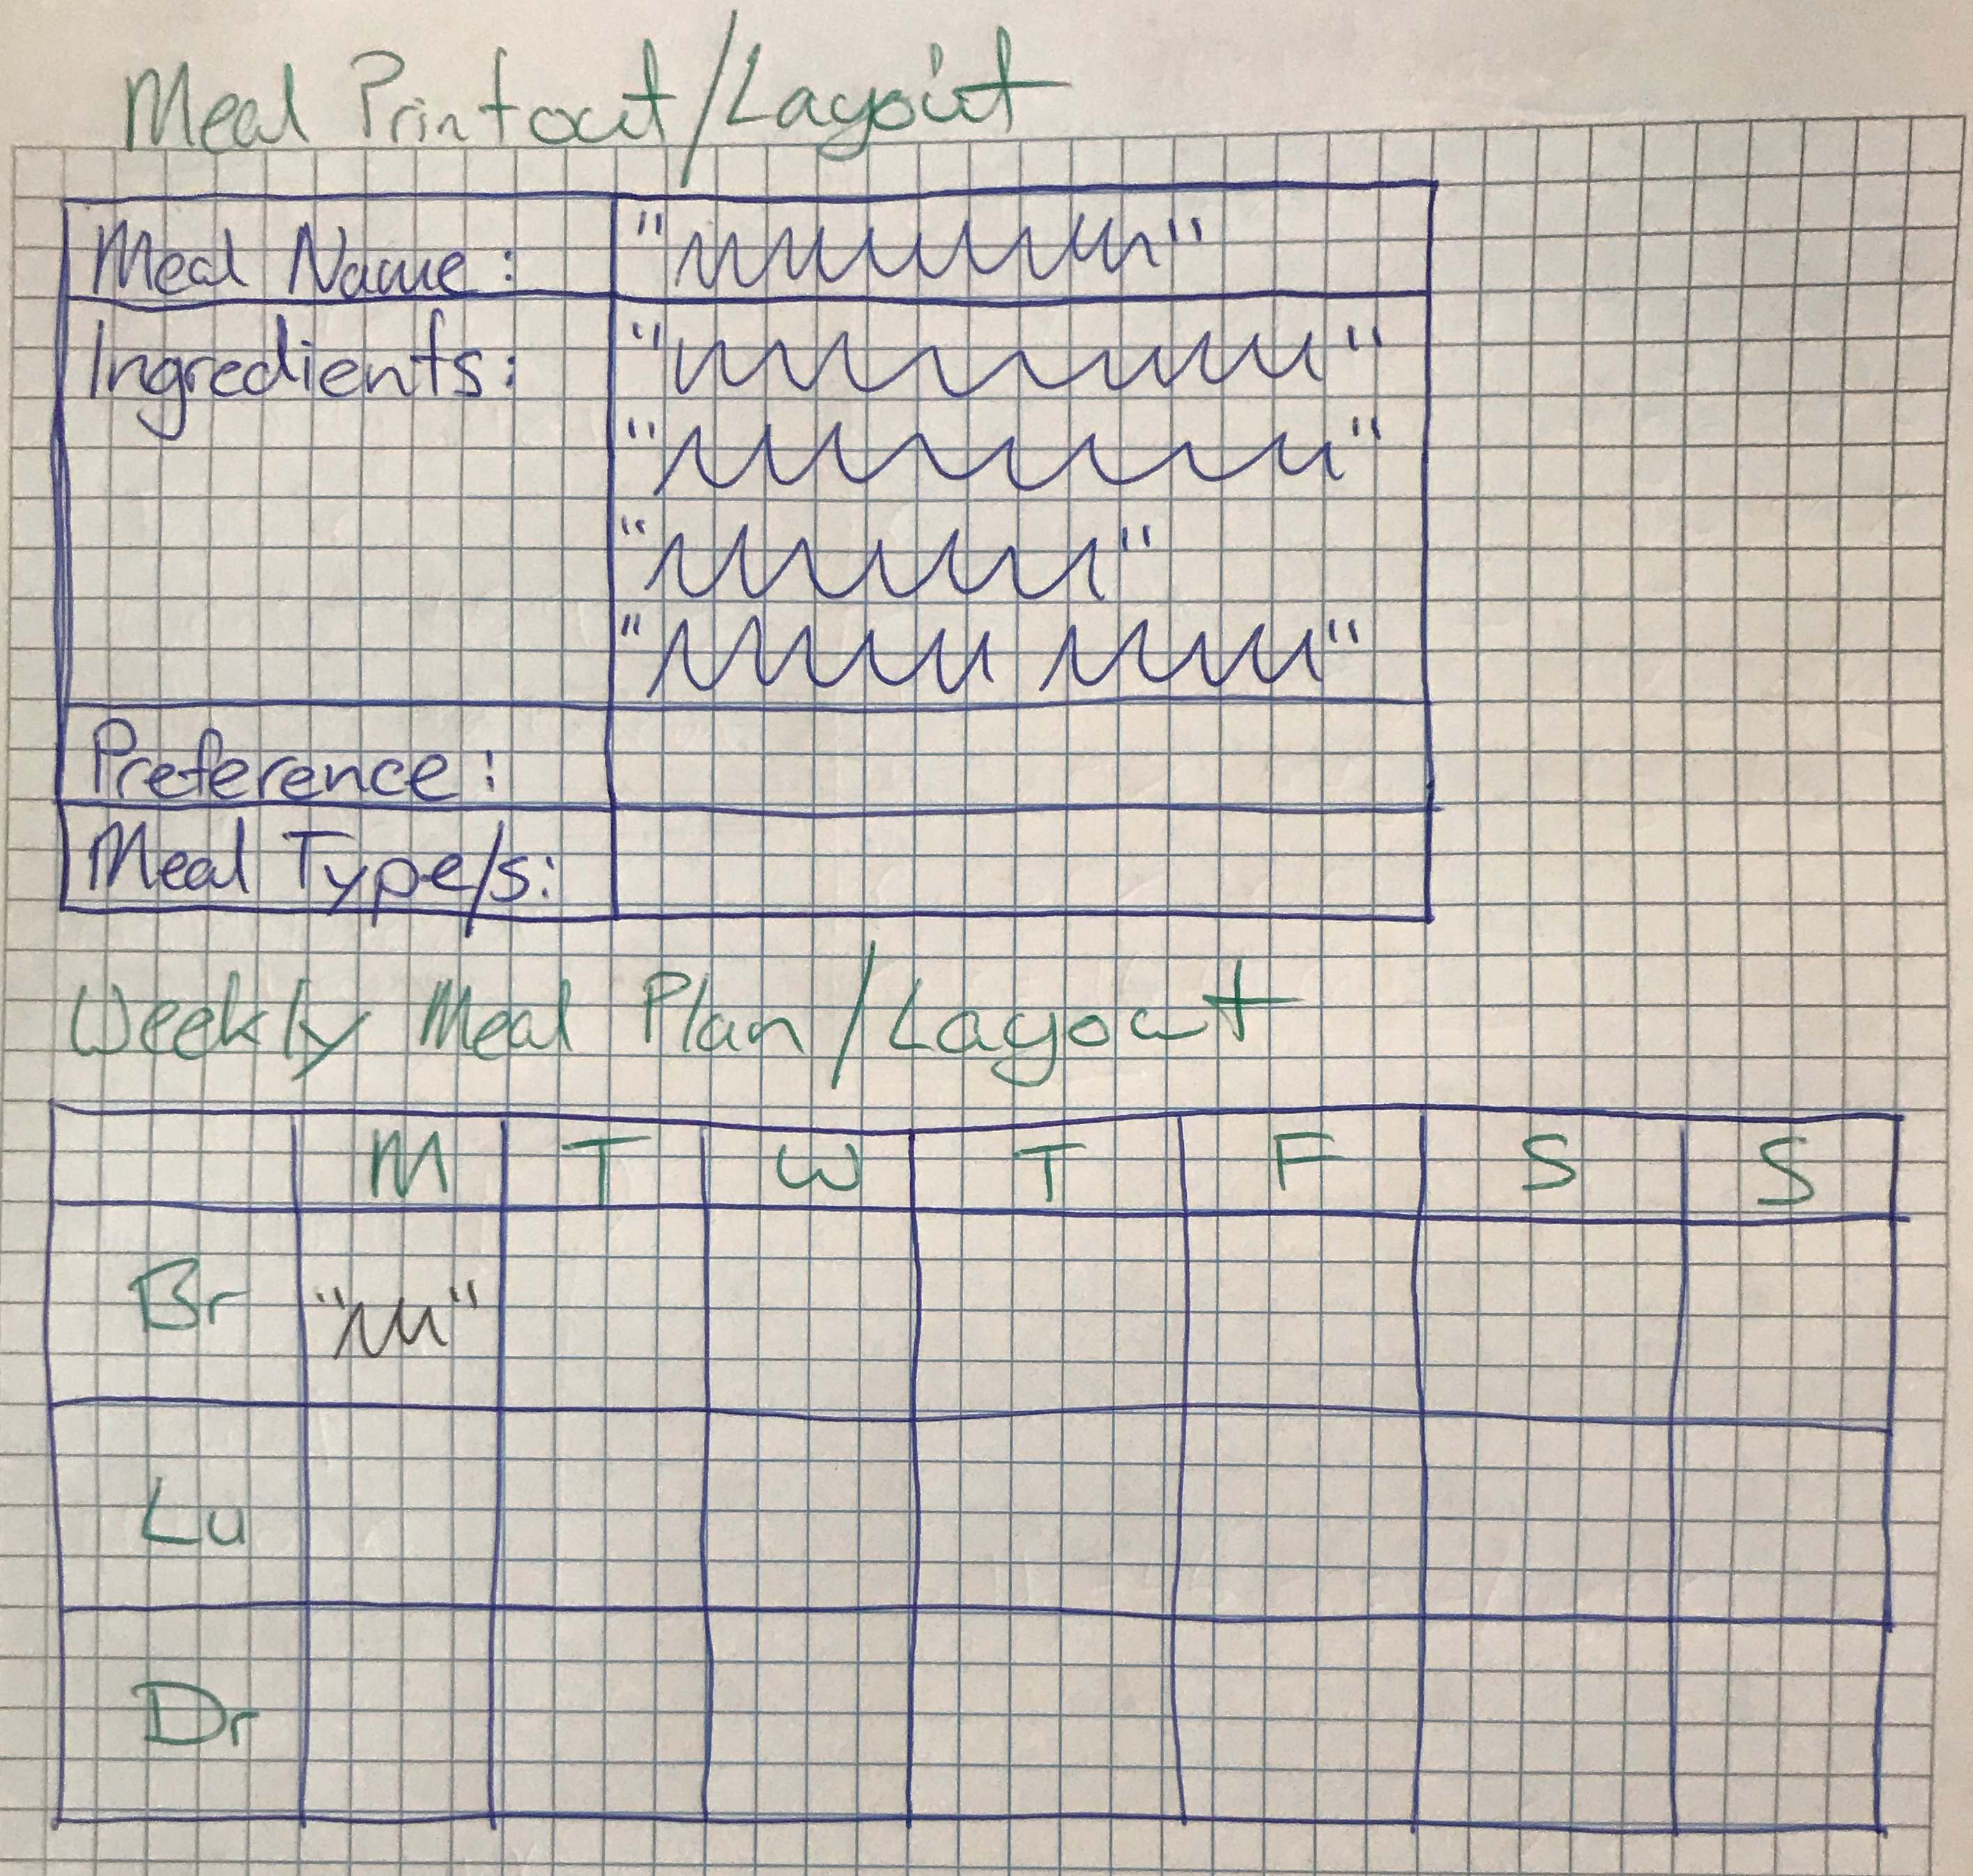 Meal Printout/Layout
Meal Name:
Ingredients:
Preference:
Meal Type/s:
Weekly Meal Plan/Layout
M T W T F S S
Br
Lu
Dr